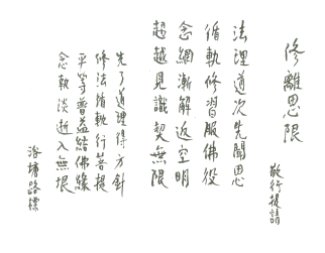 修離思限
敬行提請
法理道次先聞思
循軌修習服佛役
念網漸解返空明
超越見識契無限
先了道理得方針
修法循軌行菩提
平等普益結佛緣
念執淡逝入無垠
浴塘路標